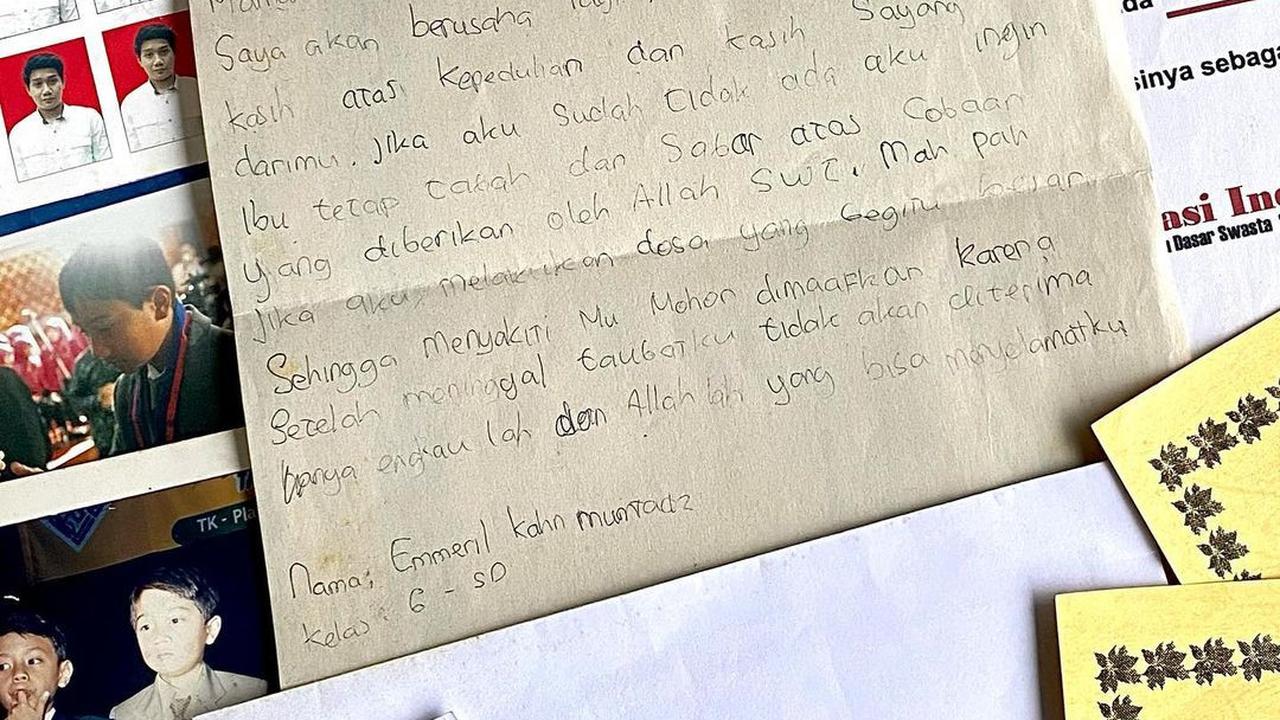 Saya akan berusaha lagi
kasih atas kepedulian dan kasih Sayang
darimu. Jika aku sudah tidak ada aku ingin
Ibu tetap tabah dan Sabar atas Cobaan
yang diberikan oleh Allah SWT. Mah pah
Jika aku melakukan dosa yang begitu besar
Sehingga menyakiti Mu Mohon dimaafkan karena
Setelah meninggal taubatku tidak akan diterima
hanya engkau lah dan Allah lah yang bisa menyelamatku
Nama: Emmeril kahn mumtadz
kelas: 6 - SD
TK - Pla
da
sinya sebaga
asi In
Dasar Swasta